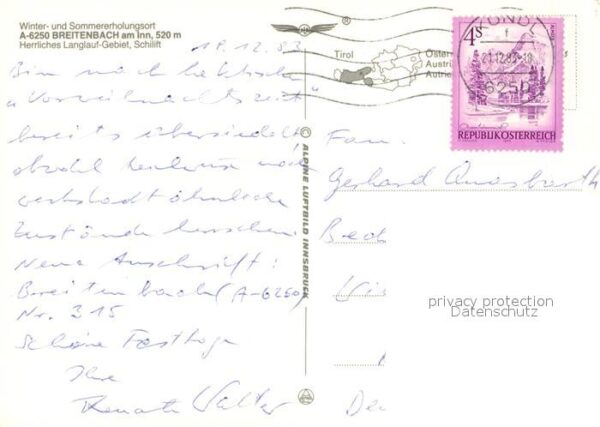 Winter- und Sommererholungsort
A-6250 BREITENBACH am Inn, 520 m
Herrliches Langlauf-Gebiet, Schilift
19.12.83
Bin nach hektischer
"Vorweihnachtszeit"
bereits übersiedelt
obwohl teilweise noch
werkstadtähnliche
Zustände herrschen.
Neue Anschrift:
Breitenbach (A-6250)
Nr. 315
Schöne Festtage
Ihre
Renate Walter
© ALPINE LUFTBILD INNSBRUCK
Tirol
Österr
Austri
Autric
KUND
1
21.12.83-18
6250
4S
REPUBLIK ÖSTERREICH
Fam.
Gerhard
privacy protection
Datenschutz